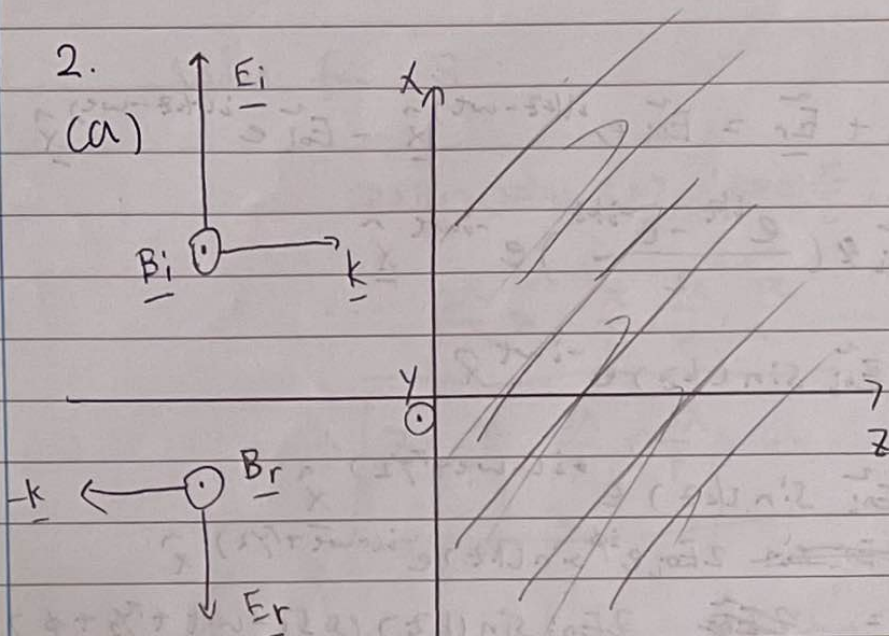 2.
(a)
E_i
x
B_i
k
y
z
-k
B_r
E_r